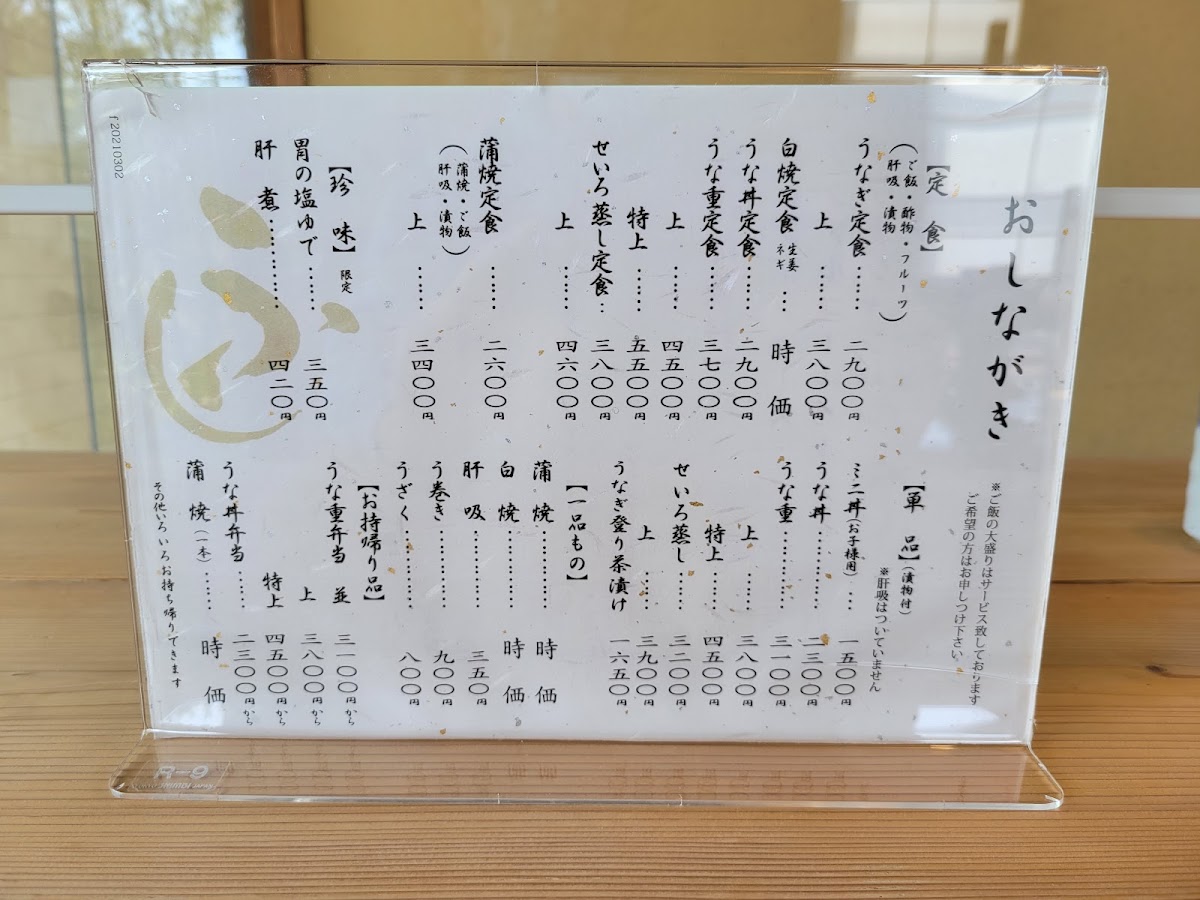 おしながき
※ご飯の大盛りはサービス致しております
ご希望の方はお申しつけ下さい
【定食】
（ご飯・酢物・フルーツ
肝吸・漬物）
うなぎ定食……二九〇〇円
上……三八〇〇円
白焼定食 生姜 ネギ …時価
うな丼定食……二九〇〇円
うな重定食……三七〇〇円
上……四五〇〇円
特上……五五〇〇円
せいろ蒸し定食‥三八〇〇円
上……四六〇〇円
蒲焼定食……二六〇〇円
（蒲焼・ご飯
肝吸・漬物）
上……三四〇〇円
【珍味】限定
胃の塩ゆで……三五〇円
肝煮…………四二〇円
【単品】（漬物付）
※肝吸はついていません
ミニ丼（お子様用）…一五〇〇円
うな丼…………二三〇〇円
うな重…………三一〇〇円
上………三八〇〇円
特上……四五〇〇円
せいろ蒸し……三二〇〇円
上……三九〇〇円
うなぎ登り茶漬け 一六五〇円
【一品もの】
蒲焼…………時価
白焼…………時価
肝吸…………三五〇円
う巻き…………九〇〇円
うざく…………八〇〇円
【お持帰り品】
うな重弁当 並 三一〇〇円から
上 三八〇〇円から
特上 四五〇〇円から
うな丼弁当……二三〇〇円から
蒲焼（一本）……時価
その他いろいろお持ち帰りできます
f20210302
R-9